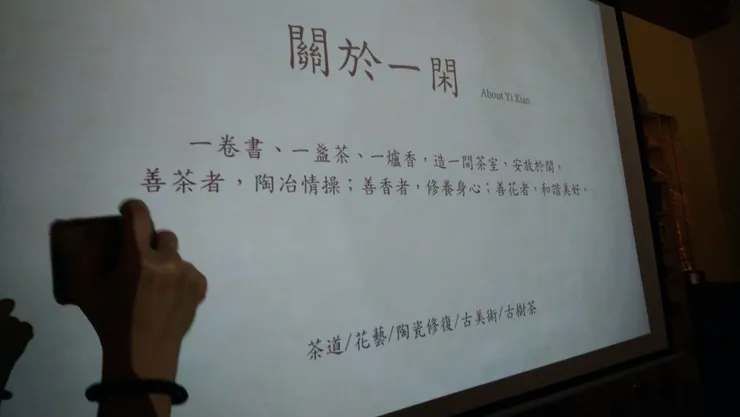 關於一閑
About Yi Xian
一卷書、一盞茶、一爐香，造一間茶室，安放於閑。
善茶者，陶冶情操；善香者，修養身心；善花者，和諧美好。
茶道/花藝/陶瓷修復/古美術/古樹茶